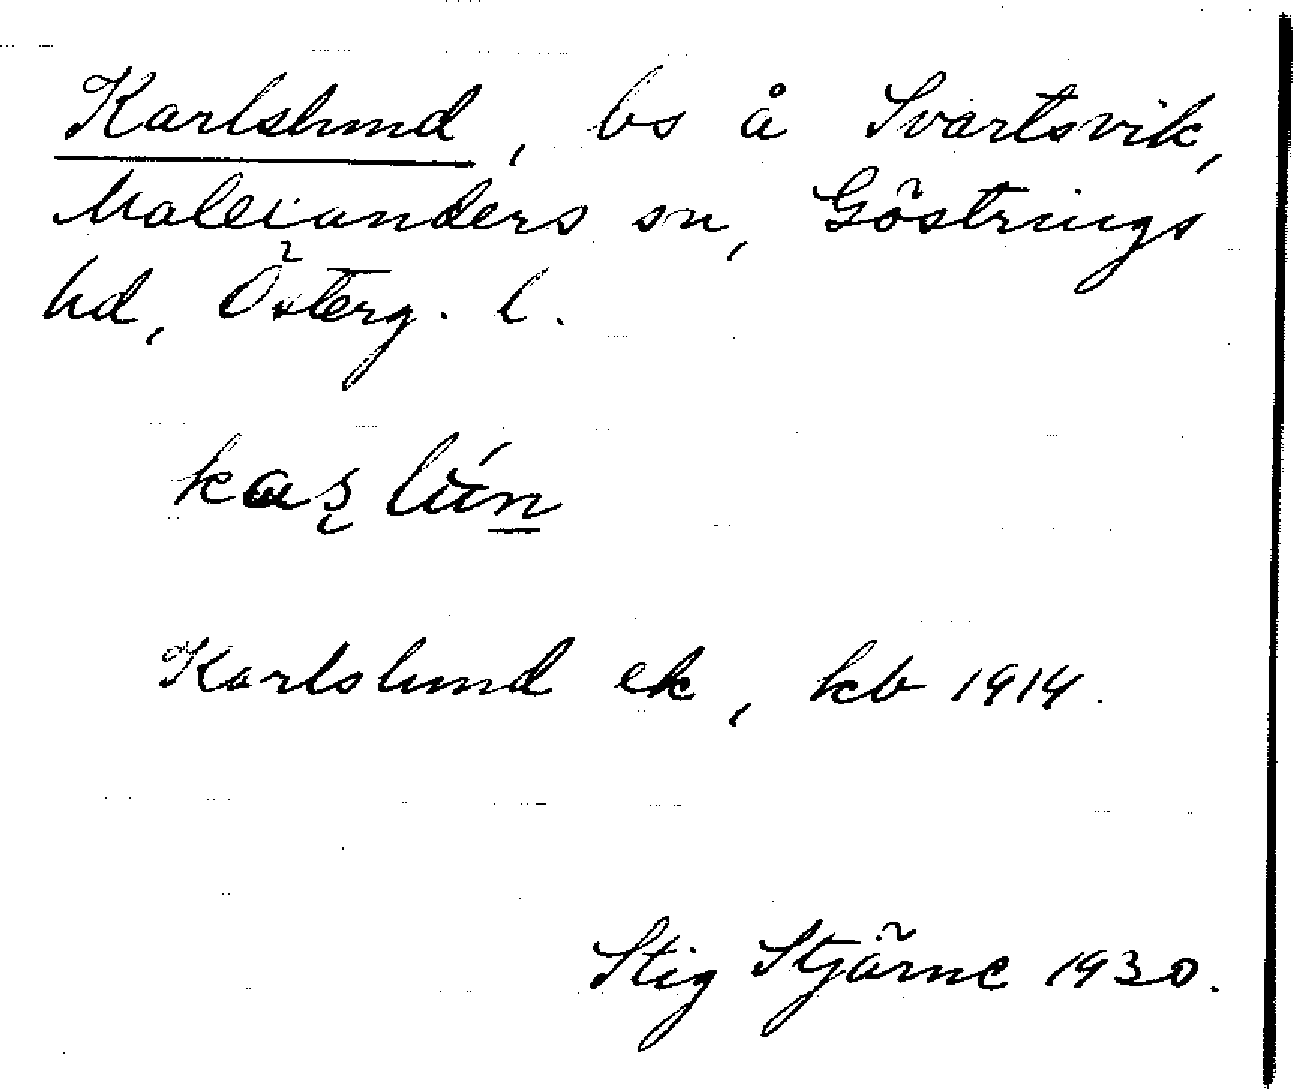 Karlslund, bs å Svartsvik,
Malexanders sn, Göstrings
hd, Österg. l.
kaʂlún
Karlslund ek, kb 1914.
Stig Stjärne 1930.